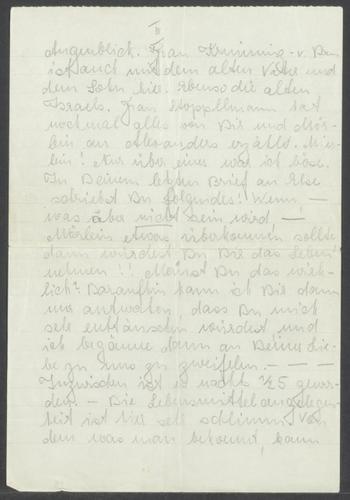 II
Augenblick. Frau
ist auch mit dem alten Vater und
dem Sohn hier. Ebenso die alten
Israels. Frau Stoppelmann hat
nochmal alles von Dir und Mör-
lein an Alexanders erzählt. Mör-
lein! Nur über eines war ich böse.
In Deinem letzten Brief an Else
schriebst Du folgendes! Wenn, —
was aber nicht sein wird —
Mörlein etwas überkommen sollte
dann würdest Du Dir das Leben
nehmen!! Meinst Du das wirk-
lich? Daraufhin kann ich Dir dann
nur antworten, dass Du mich
sehr enttäuschen würdest und
ich begänne dann an Deiner Lie-
be zu uns zu zweifeln. — — —
Inzwischen ist es nachts ½5 gewor-
den. — Die Lebensmittelangelegen-
heit ist hier sehr schlimm. Von
dem was man bekommt, kann